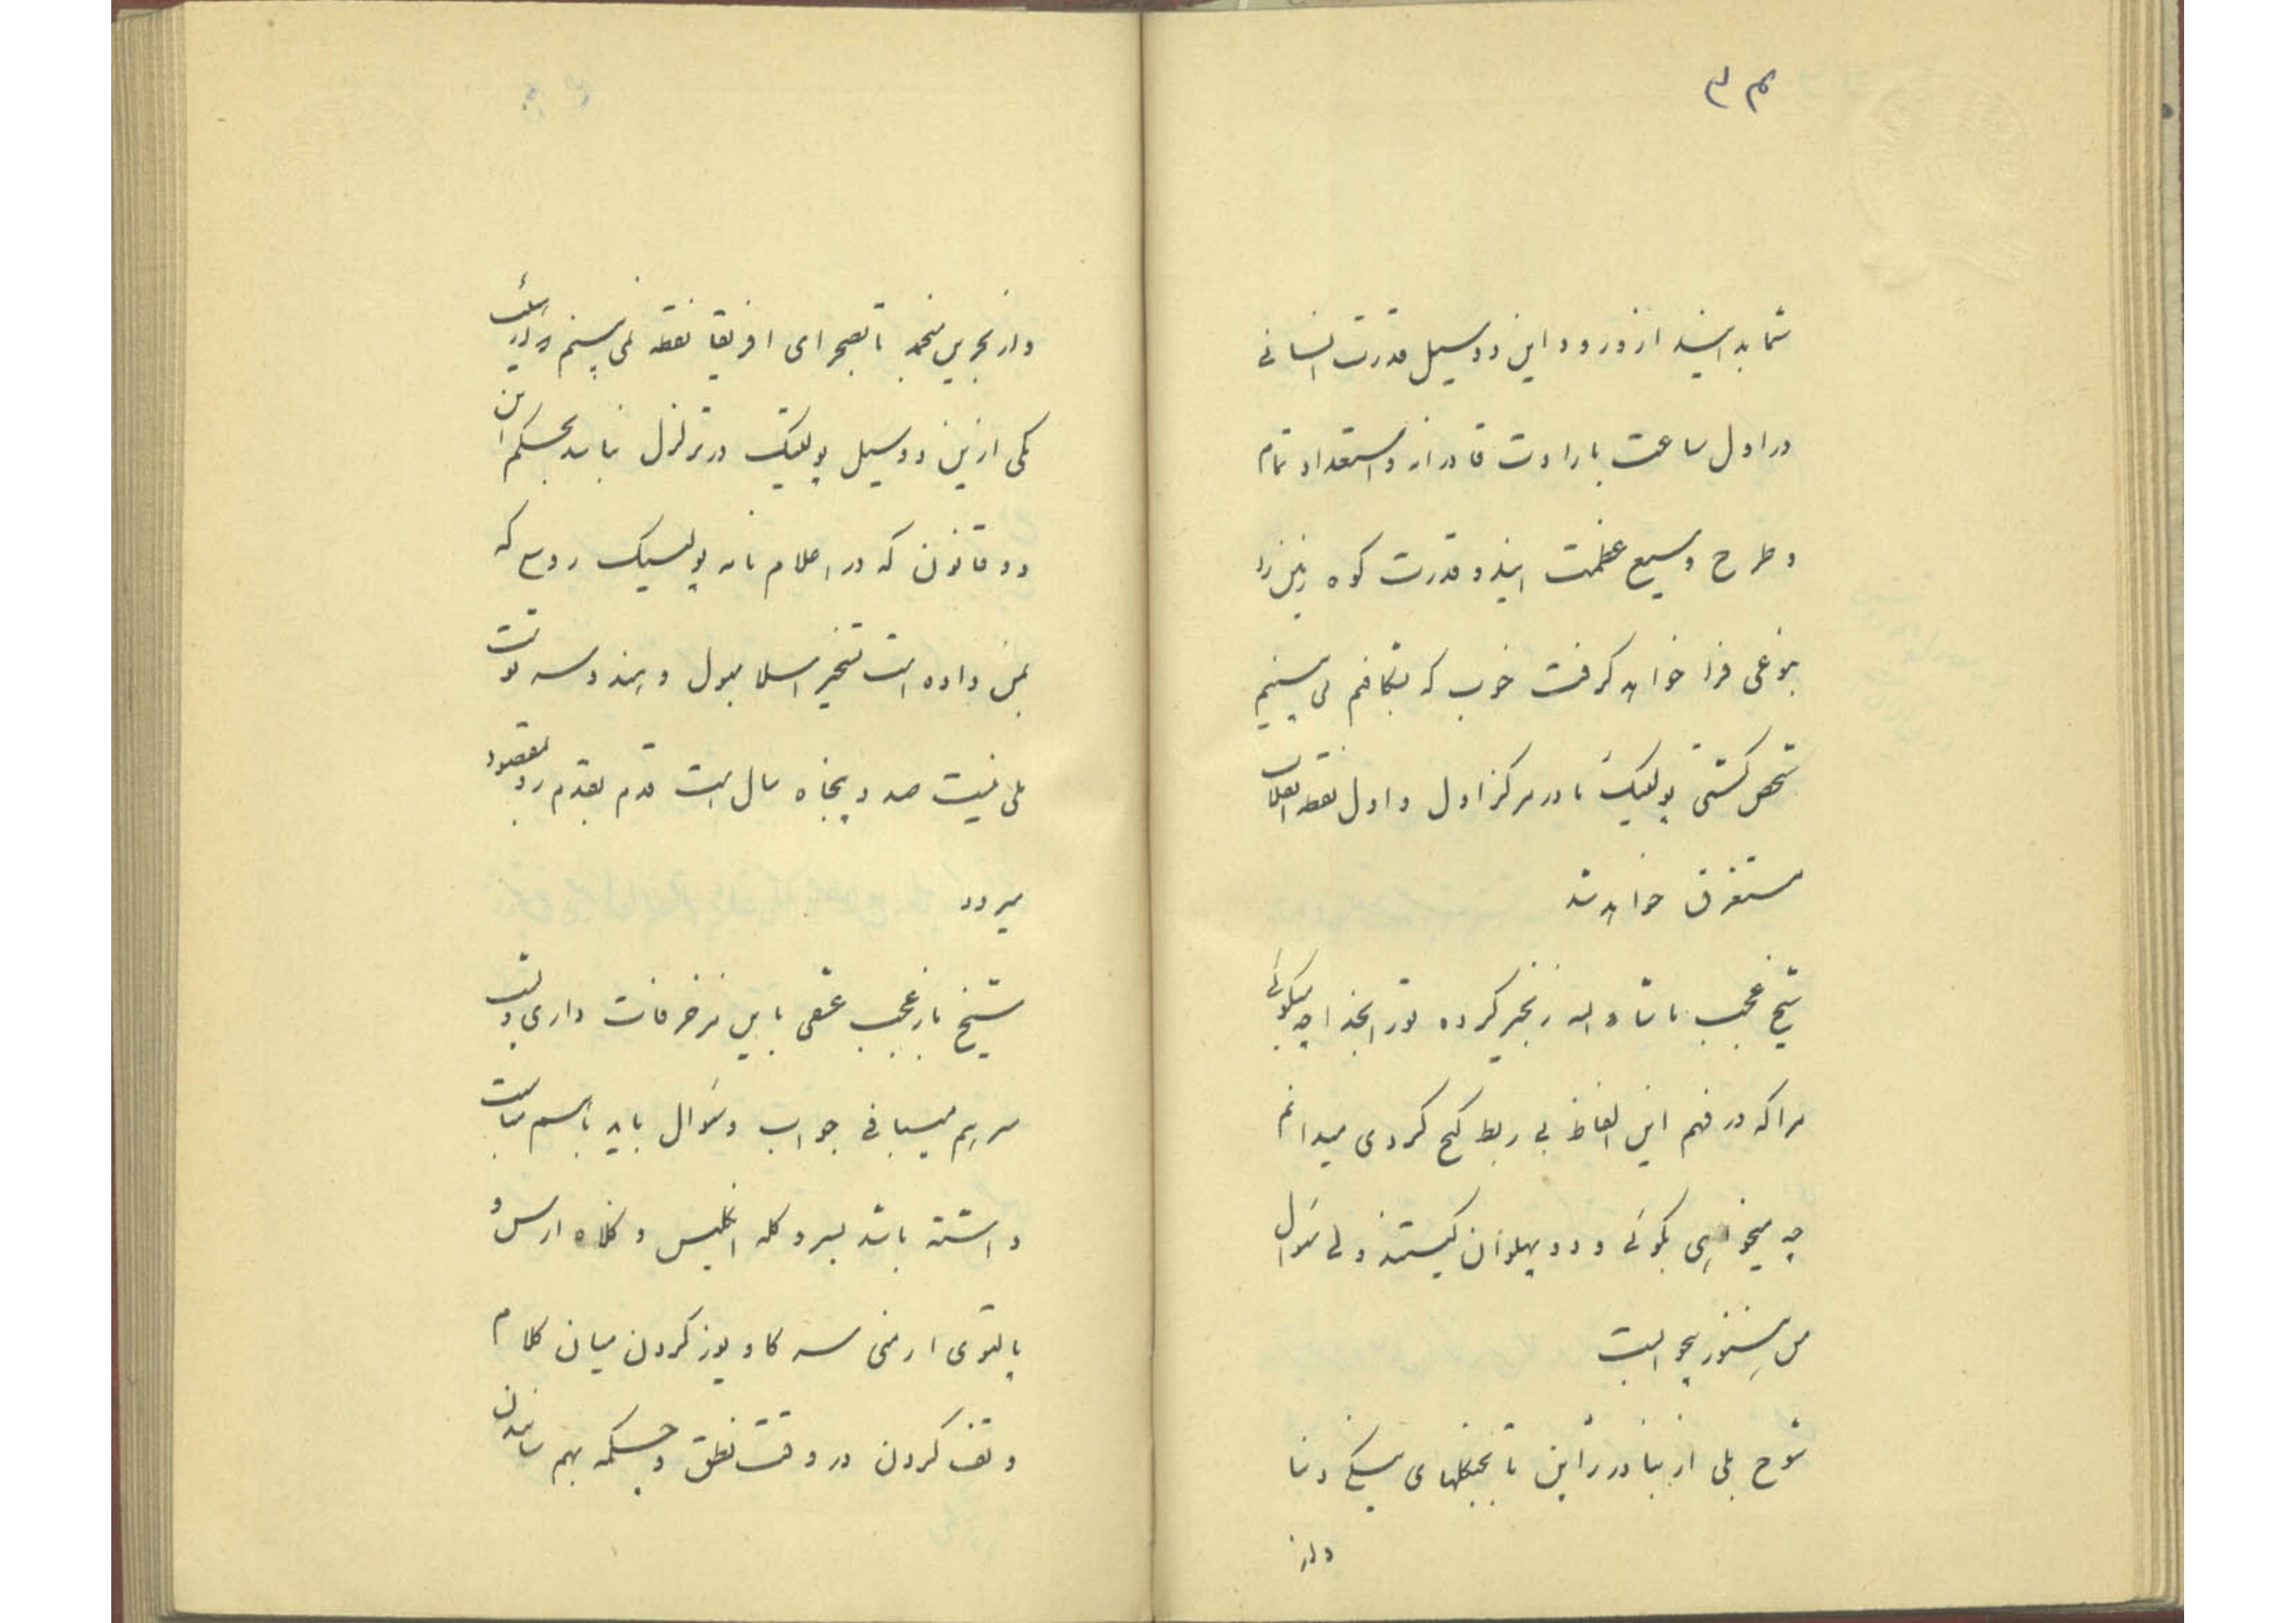 ۳۴
شما بدانید از ورود این دو سیل قدرت انسانی
در اول ساعت با رادت قادرانه و استعداد تمام
و طرح وسیع عظمت ایند و قدرت کوه زمین را
بنوعی فرا خواهد گرفت خوب که بشکافیم می بینیم
شخص کشتی پولتیک ما در مرکز اول و اول نقطه انقلاب
مستغرق خواهد شد
شیخ عجب ماشاء الله زنجیر کرده تو را بخدا چه میگوئی
مرا که در فهم این الفاظ بی ربط گیج کردی میدانم
چه میخواهی بگوئی و دو پهلوان کیستند ولی سؤال
من هنوز بیجوابست
شوخ بلی از بنادر ژاپن تا بجنگلهای ینگی دنیا
و از
و از بحرین منجمد تا بصحرای افریقا نقطه نمی بینم که در آن
یکی ازین دو سیل پولتیک در تزلزل نباید بحکم این
دو قانون که در اعلام نامه پولتیک روس که
بمن داده است تسخیر اسلامبول و هند و سه
بلی نیست صد و پنجاه سال است قدم بقدم رو بمقصود
میرود
شیخ باز عجب عشقی باین مزخرفات داری
سر هم میبافی جواب و سؤال باید باسم مناسبت
داشته باشد بسر و کله انگلیس و کلاه ارس و
پالتوی ارمنی سه کا و پوز کردن میان کلام
و تف کردن در وقت نطق و چکمه بهم سائیدن